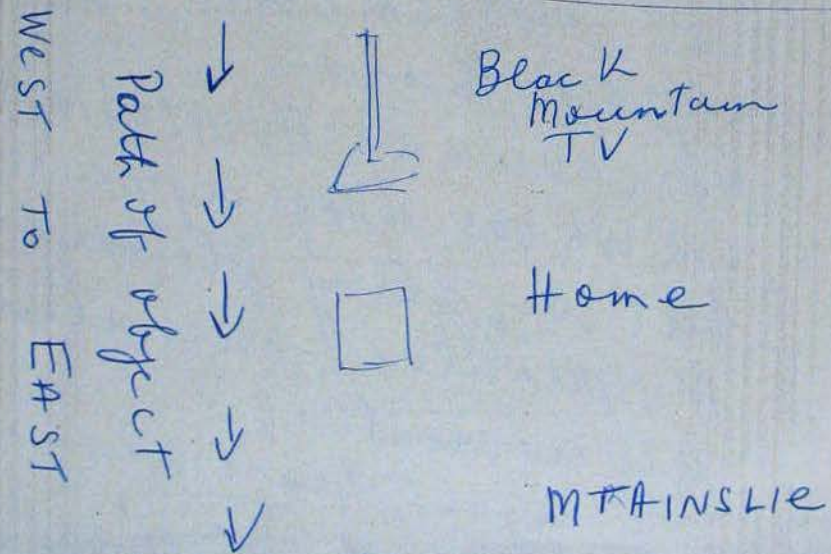 WEST TO EAST
Path of object
Black
Mountain
TV
Home
MT AINSLIE